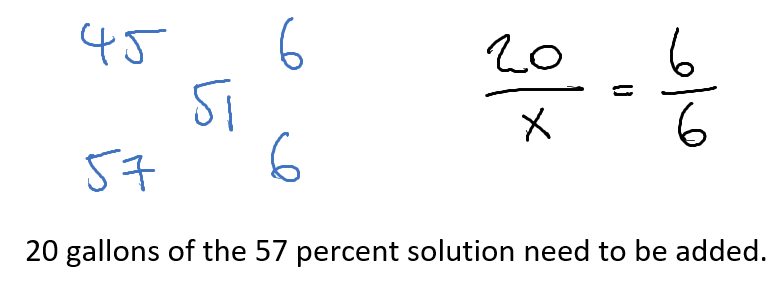 45 6
51
57 6
20/x = 6/6
20 gallons of the 57 percent solution need to be added.